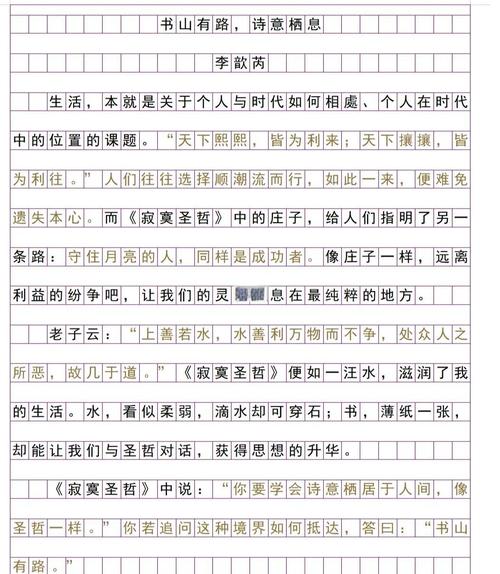 书山有路，诗意栖息
李歆芮
生活，本就是关于个人与时代如何相處、个人在时代
中的位置的课题。“天下熙熙，皆为利来；天下攘攘，皆
为利往。”人们往往选择顺潮流而行，如此一来，便难免
遗失本心。而《寂寞圣哲》中的庄子，给人们指明了另一
条路：守住月亮的人，同样是成功者。像庄子一样，远离
利益的纷争吧，让我们的灵息在最纯粹的地方。
老子云：“上善若水，水善利万物而不争，处众人之
所恶，故几于道。”《寂寞圣哲》便如一汪水，滋润了我
的生活。水，看似柔弱，滴水却可穿石；书，薄纸一张，
却能让我们与圣哲对话，获得思想的升华。
《寂寞圣哲》中说：“你要学会诗意栖居于人间，像
圣哲一样。”你若追问这种境界如何抵达，答曰：“书山
有路。”